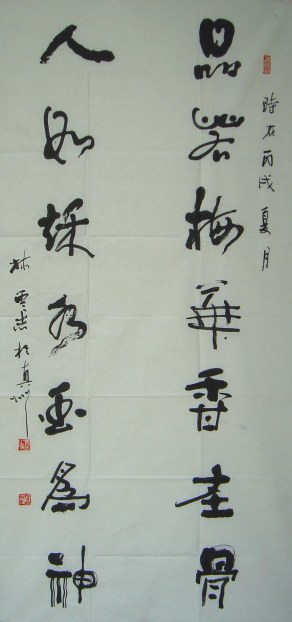 時在丙戌夏月
品若梅華香在骨
人如秋水玉為神
林雲於真州